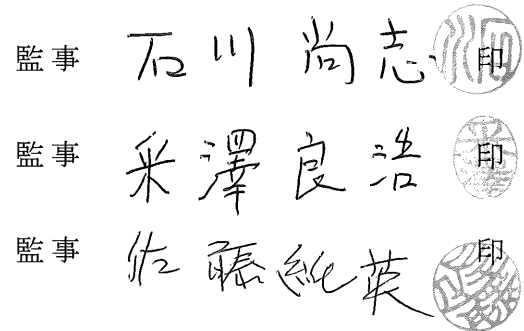 監事 石川 尚志 印
監事 采澤良浩 印
監事 佐藤純英 印